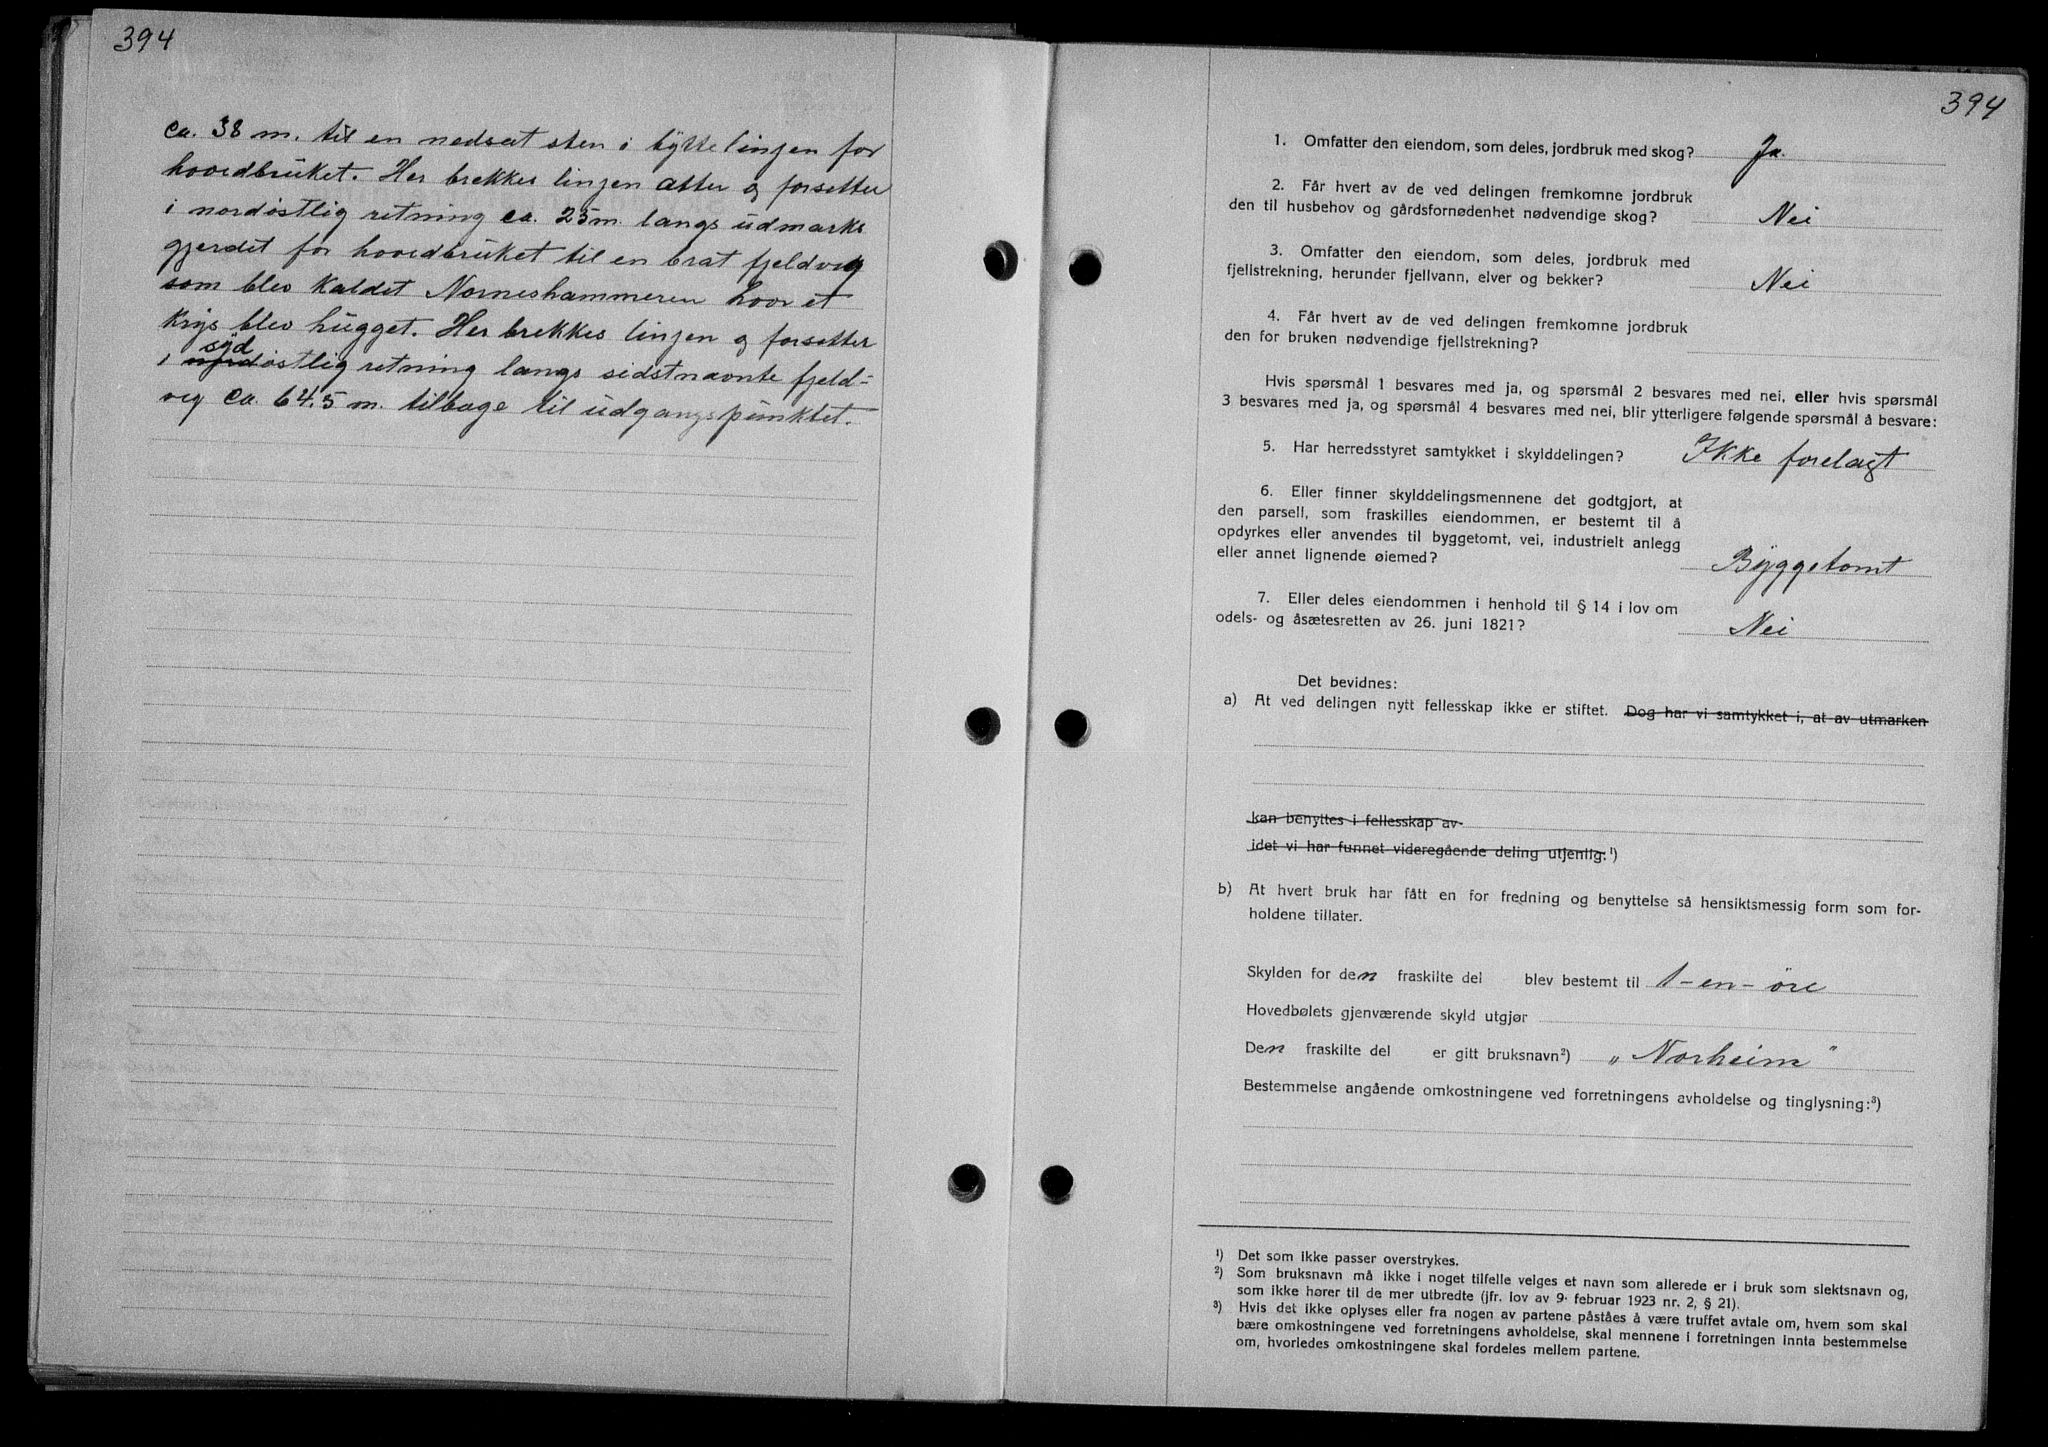 394
ca. 38 m. til en nedsat sten i bytte linjen for
hovedbruket. Her brekkes linjen atter og forsetter
i nordøstlig retning ca. 25 m. langs udmarks
gjerdet for hovedbruket til en brat fjeldveg
som blev kaldet Norneshammeren hvor et
krys blev hugget. Her brekkes linjen og forsetter
syd
i nordøstlig retning langs sidstnævnte fjeld-
veg ca. 64.5 m. tilbage til udgangspunktet.
394
1. Omfatter den eiendom, som deles, jordbruk med skog? Ja.
2. Får hvert av de ved delingen fremkomne jordbruk
den til husbehov og gårdsfornødenhet nødvendige skog? Nei
3. Omfatter den eiendom, som deles, jordbruk med
fjellstrekning, herunder fjellvann, elver og bekker? Nei
4. Får hvert av de ved delingen fremkomne jordbruk
den for bruken nødvendige fjellstrekning?
Hvis spørsmål 1 besvares med ja, og spørsmål 2 besvares med nei, eller hvis spørsmål
3 besvares med ja, og spørsmål 4 besvares med nei, blir ytterligere følgende spørsmål å besvare:
5. Har herredsstyret samtykket i skylddelingen? Ikke forelagt
6. Eller finner skylddelingsmennene det godtgjort, at
den parsell, som fraskilles eiendommen, er bestemt til å
opdyrkes eller anvendes til byggetomt, vei, industrielt anlegg
eller annet lignende øiemed? Byggetomt
7. Eller deles eiendommen i henhold til § 14 i lov om
odels- og åsætesretten av 26. juni 1821? Nei
Det bevidnes:
a) At ved delingen nytt fellesskap ikke er stiftet. Dog har vi samtykket i, at av utmarken
kan benyttes i fellesskap av
idet vi har funnet videregående deling utjenlig.¹)
b) At hvert bruk har fått en for fredning og benyttelse så hensiktsmessig form som for-
holdene tillater.
Skylden for den fraskilte del blev bestemt til 1-en-øre
Hovedbølets gjenværende skyld utgjør
Den fraskilte del er gitt bruksnavn²) „Norheim"
Bestemmelse angående omkostningene ved forretningens avholdelse og tinglysning:³)
¹) Det som ikke passer overstrykes.
²) Som bruksnavn må ikke i noget tilfelle velges et navn som allerede er i bruk som slektsnavn og,
som ikke hører til de mer utbredte (jfr. lov av 9. februar 1923 nr. 2, § 21).
³) Hvis det ikke oplyses eller fra nogen av partene påståes å være truffet avtale om, hvem som skal
bære omkostningene ved forretningens avholdelse, skal mennene i forretningen innta bestemmelse
om, hvorledes omkostningene skal fordeles mellem partene.